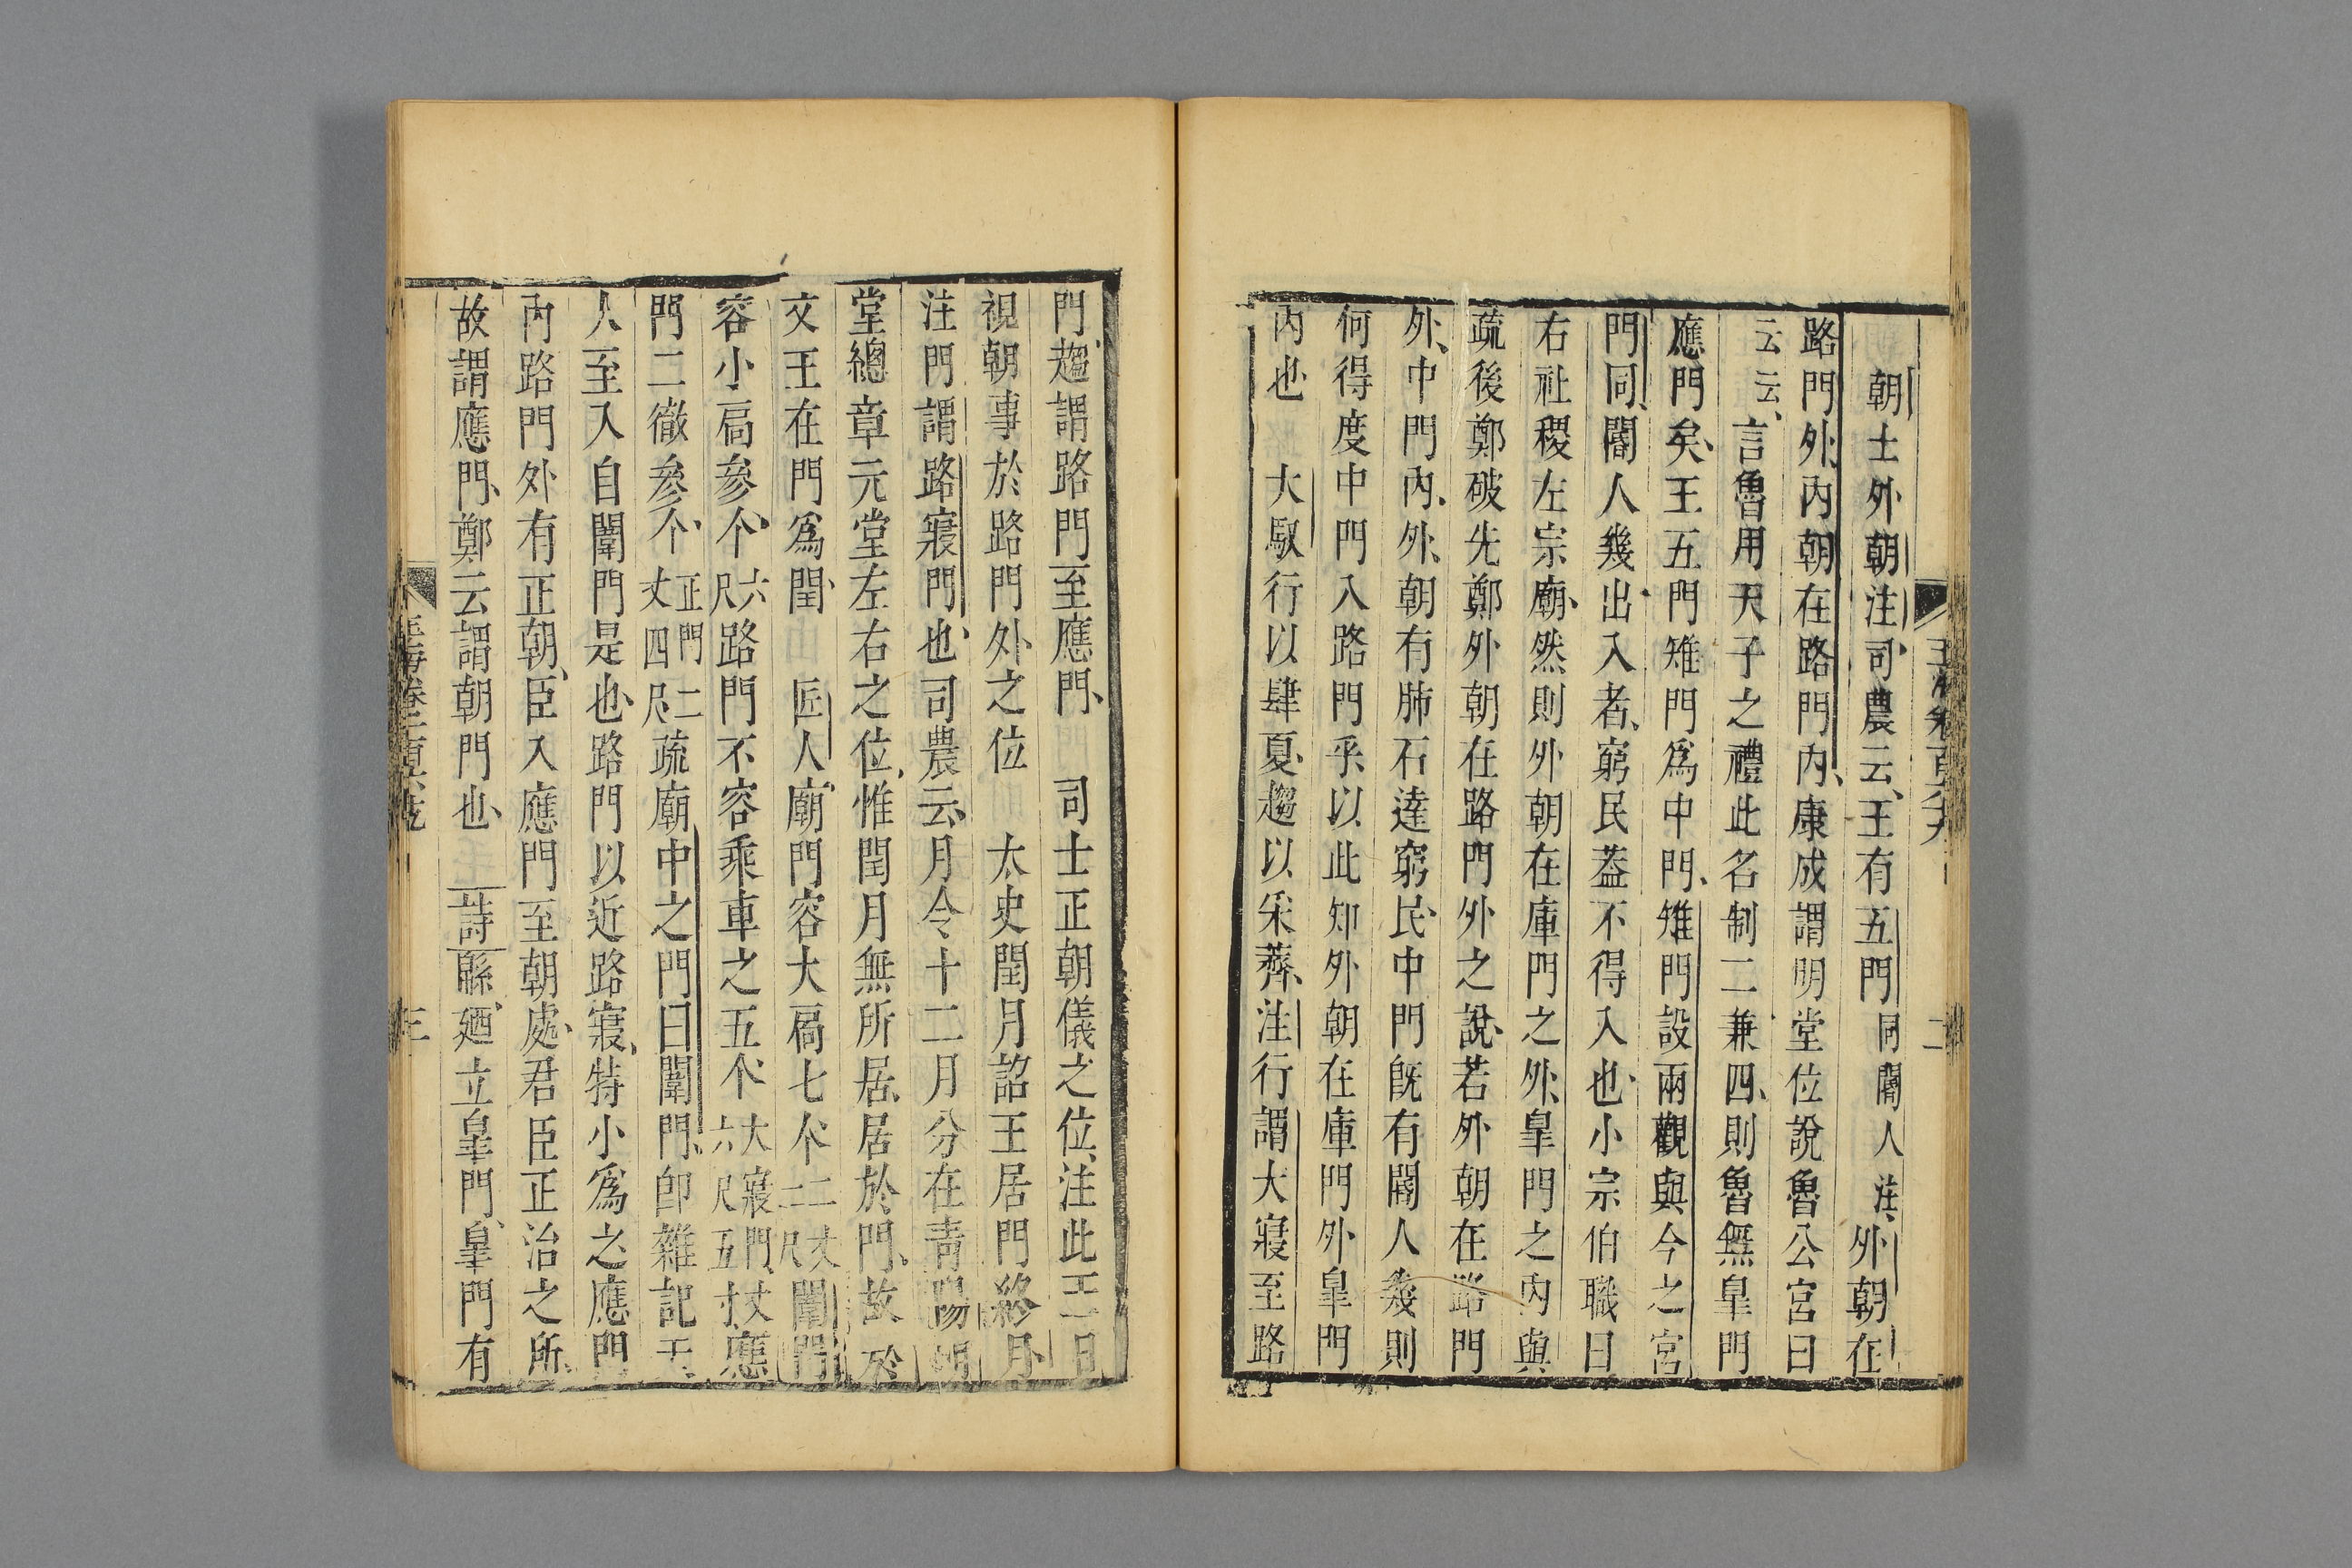 朝士外朝注司農云王有五門同閽人注外朝在
路門外內朝在路門內康成謂明堂位說魯公宮曰
云云言魯用天子之禮此名制二兼四則魯無皐門
應門矣王五門雉門爲中門雉門設兩觀與今之宮
門同閽人幾出入者窮民蓋不得入也小宗伯職曰
右社稷左宗廟然則外朝在庫門之外皐門之內與
疏後鄭破先鄭外朝在路門外之說若外朝在路門
外中門內外朝有肺石達窮民中門旣有閽人幾則
何得度中門入路門乎以此知外朝在庫門外皐門
內也 大馭行以肆夏趨以采薺注行謂大寢至路
門趨謂路門至應門 司士正朝儀之位注此王日
視朝事於路門外之位 太史閏月詔王居門終月
注門謂路寢門也司農云月令十二月分在靑陽明
堂總章元堂左右之位惟閏月無所居居於門故於
文王在門爲閏 匠人廟門容大扃七个二丈二尺闈門
容小扃參个六尺路門不容乘車之五个大寢門丈六尺五寸應
門二徹參个正門二丈四尺疏廟中之門曰闈門卽雜記夫
人至入自闈門是也路門以近路寢特小爲之應門
內路門外有正朝臣入應門至朝處君臣正治之所
故謂應門鄭云謂朝門也 詩緜廼立皐門皐門有
三